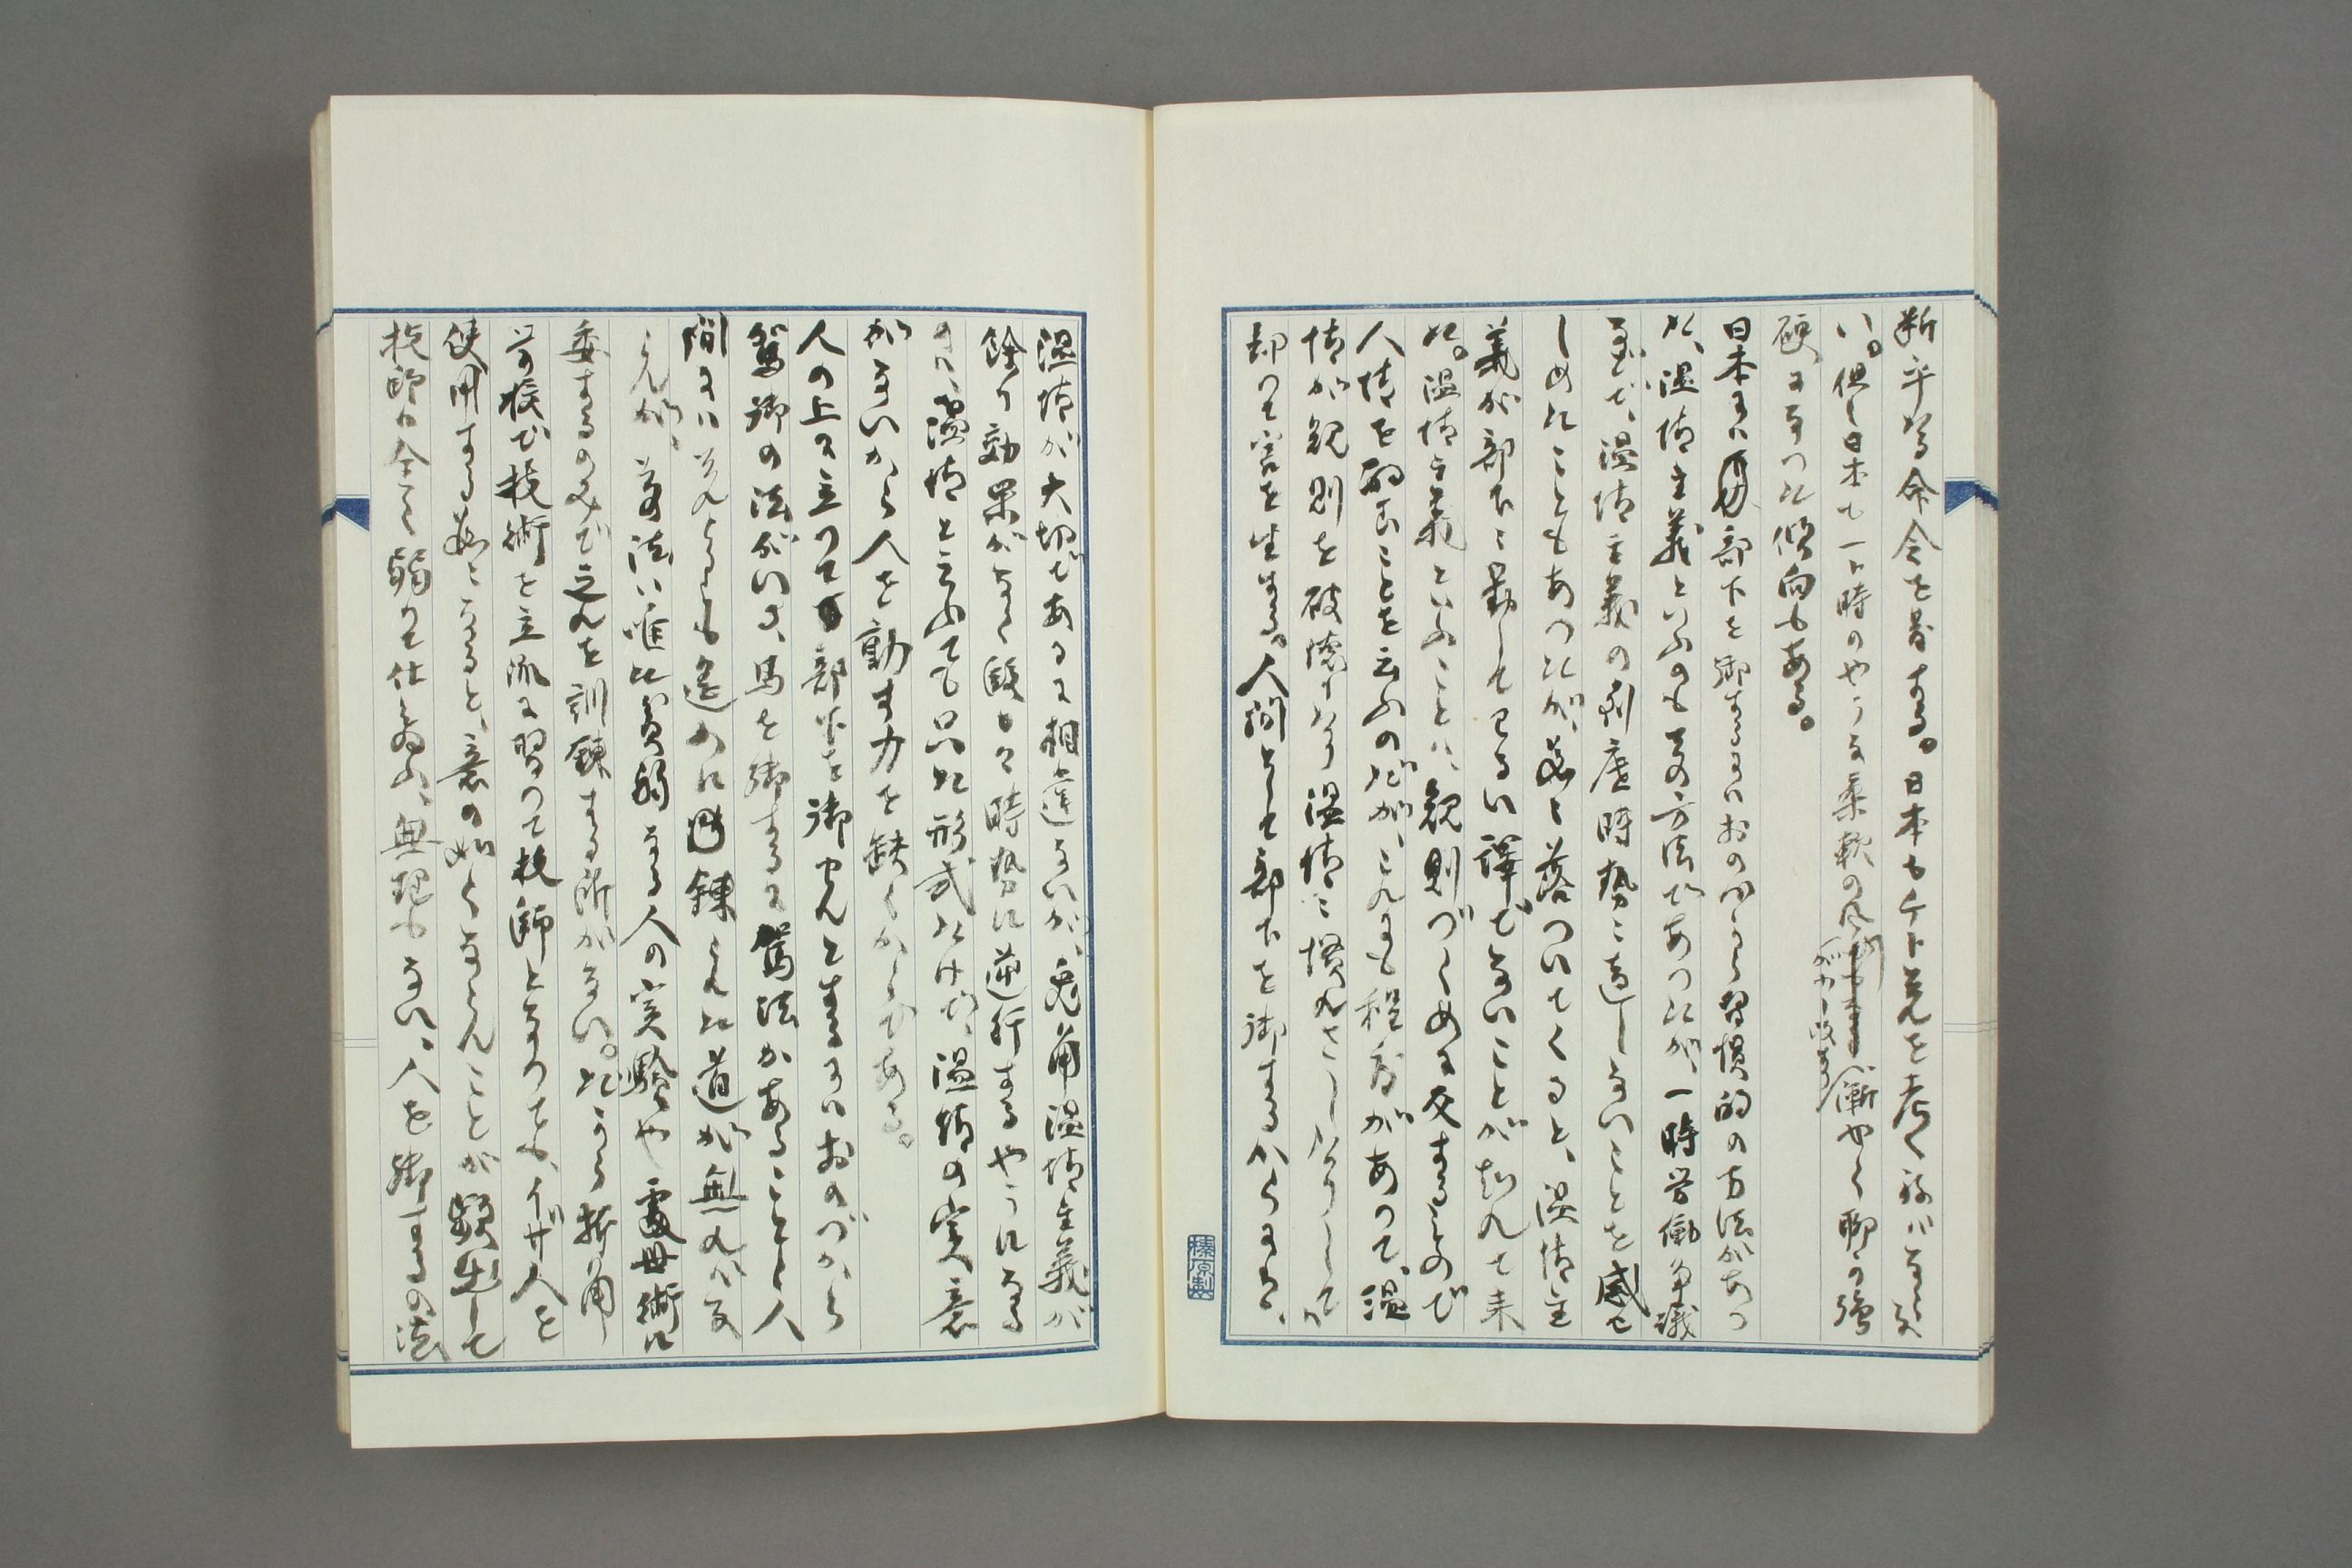 断乎たる命令を発する。日本も少し之を考へねばなるま
い。但し日本も一ト時のやうな柔軟の風が少し改まり漸やく聊か強
硬になつた傾向もある。
日本には部下を御するにはおのづから習慣的の方法があつ
た、温情主義といふのも其の方法であつたが、一時労働争議
などで、温情主義の制度時勢に適しないことを感ぜ
しめたこともあつたが、段々落ついてくると、温情主
義が部下に対してわるい訳でないことが知れて来
た。温情主義といふことは、規則づくめに反するもので
人情を酌むことを云ふのだが、これにも程度があつて、温
情が規則を破壊したり温情に慣れさしたりしては
却つて害を生ずる。人間として部下を御するからには、
温情が大切であるに相違ないが、兎角温情主義が
余り効果がなく段々時勢に逆行するやうになる
のは、温情と云ふても只だ形式だけで、温情の実意
がないから人を動す力を缺くからである。
人の上に立つて部下を御せんとするにはおのづから
駕御の法がいる、馬を御するに馭法があるごとく人
間には之れよりも進みたる訓錬された道が無ければな
らんが、其法は唯だ貧弱なる人の実験や処世術に
委するのみで之れを訓錬する所がない。だから折角
学校で技術を立派に習つて技師となつても、イザ人を
使用する段になると、意の如くならんことが頻出して
技師は全く弱つて仕舞ふ、無理もない、人を御するの法